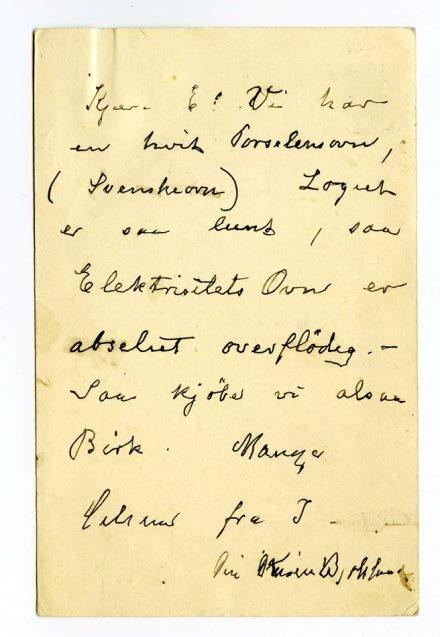 Kjære E! Vi har
en hvit Porselensovn,
(Svenskeovn) Logiet
er saa lunt, saa
Elektrisitets Ovn er
absolut overflödig.-
Saa kjöbe vi alsaa
Birk. Mange
Hilsener fra I
Din